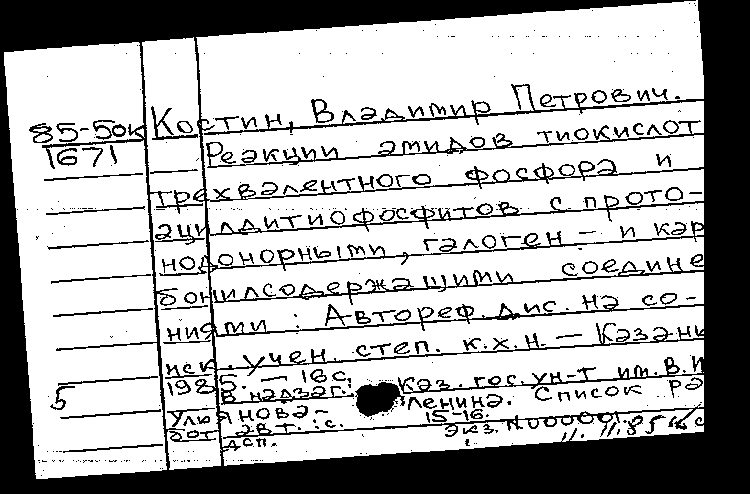 85-5ок Костин, Владимир Петрович.
1671 Реакции амидов тиокислот
трехвалентного фосфора и
ацилдитиофосфитов с прото-
нодонорными, галоген- и кар
бонилсодержащими соедине
ниями: Автореф. дис. на со-
иск. учен. степ. к.х.н. — Казань
1985. — 16 с.
5 В надзаг.: Каз. гос. ун-т им. В.И
Ульянова- Ленина. Список ра
бот авт.: с. 15-16.
дсп. Экз. N 000001.
11.11.85